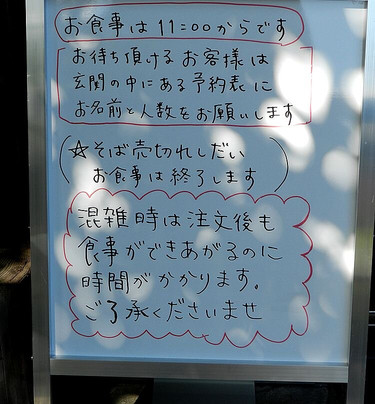 お食事は11:00からです
お待ち頂けるお客様は
玄関の中にある予約表に
お名前と人数をお願いします
(☆そば売切れしだい
お食事は終了します)
混雑時は注文後も
食事ができあがるのに
時間がかかります。
ご了承くださいませ